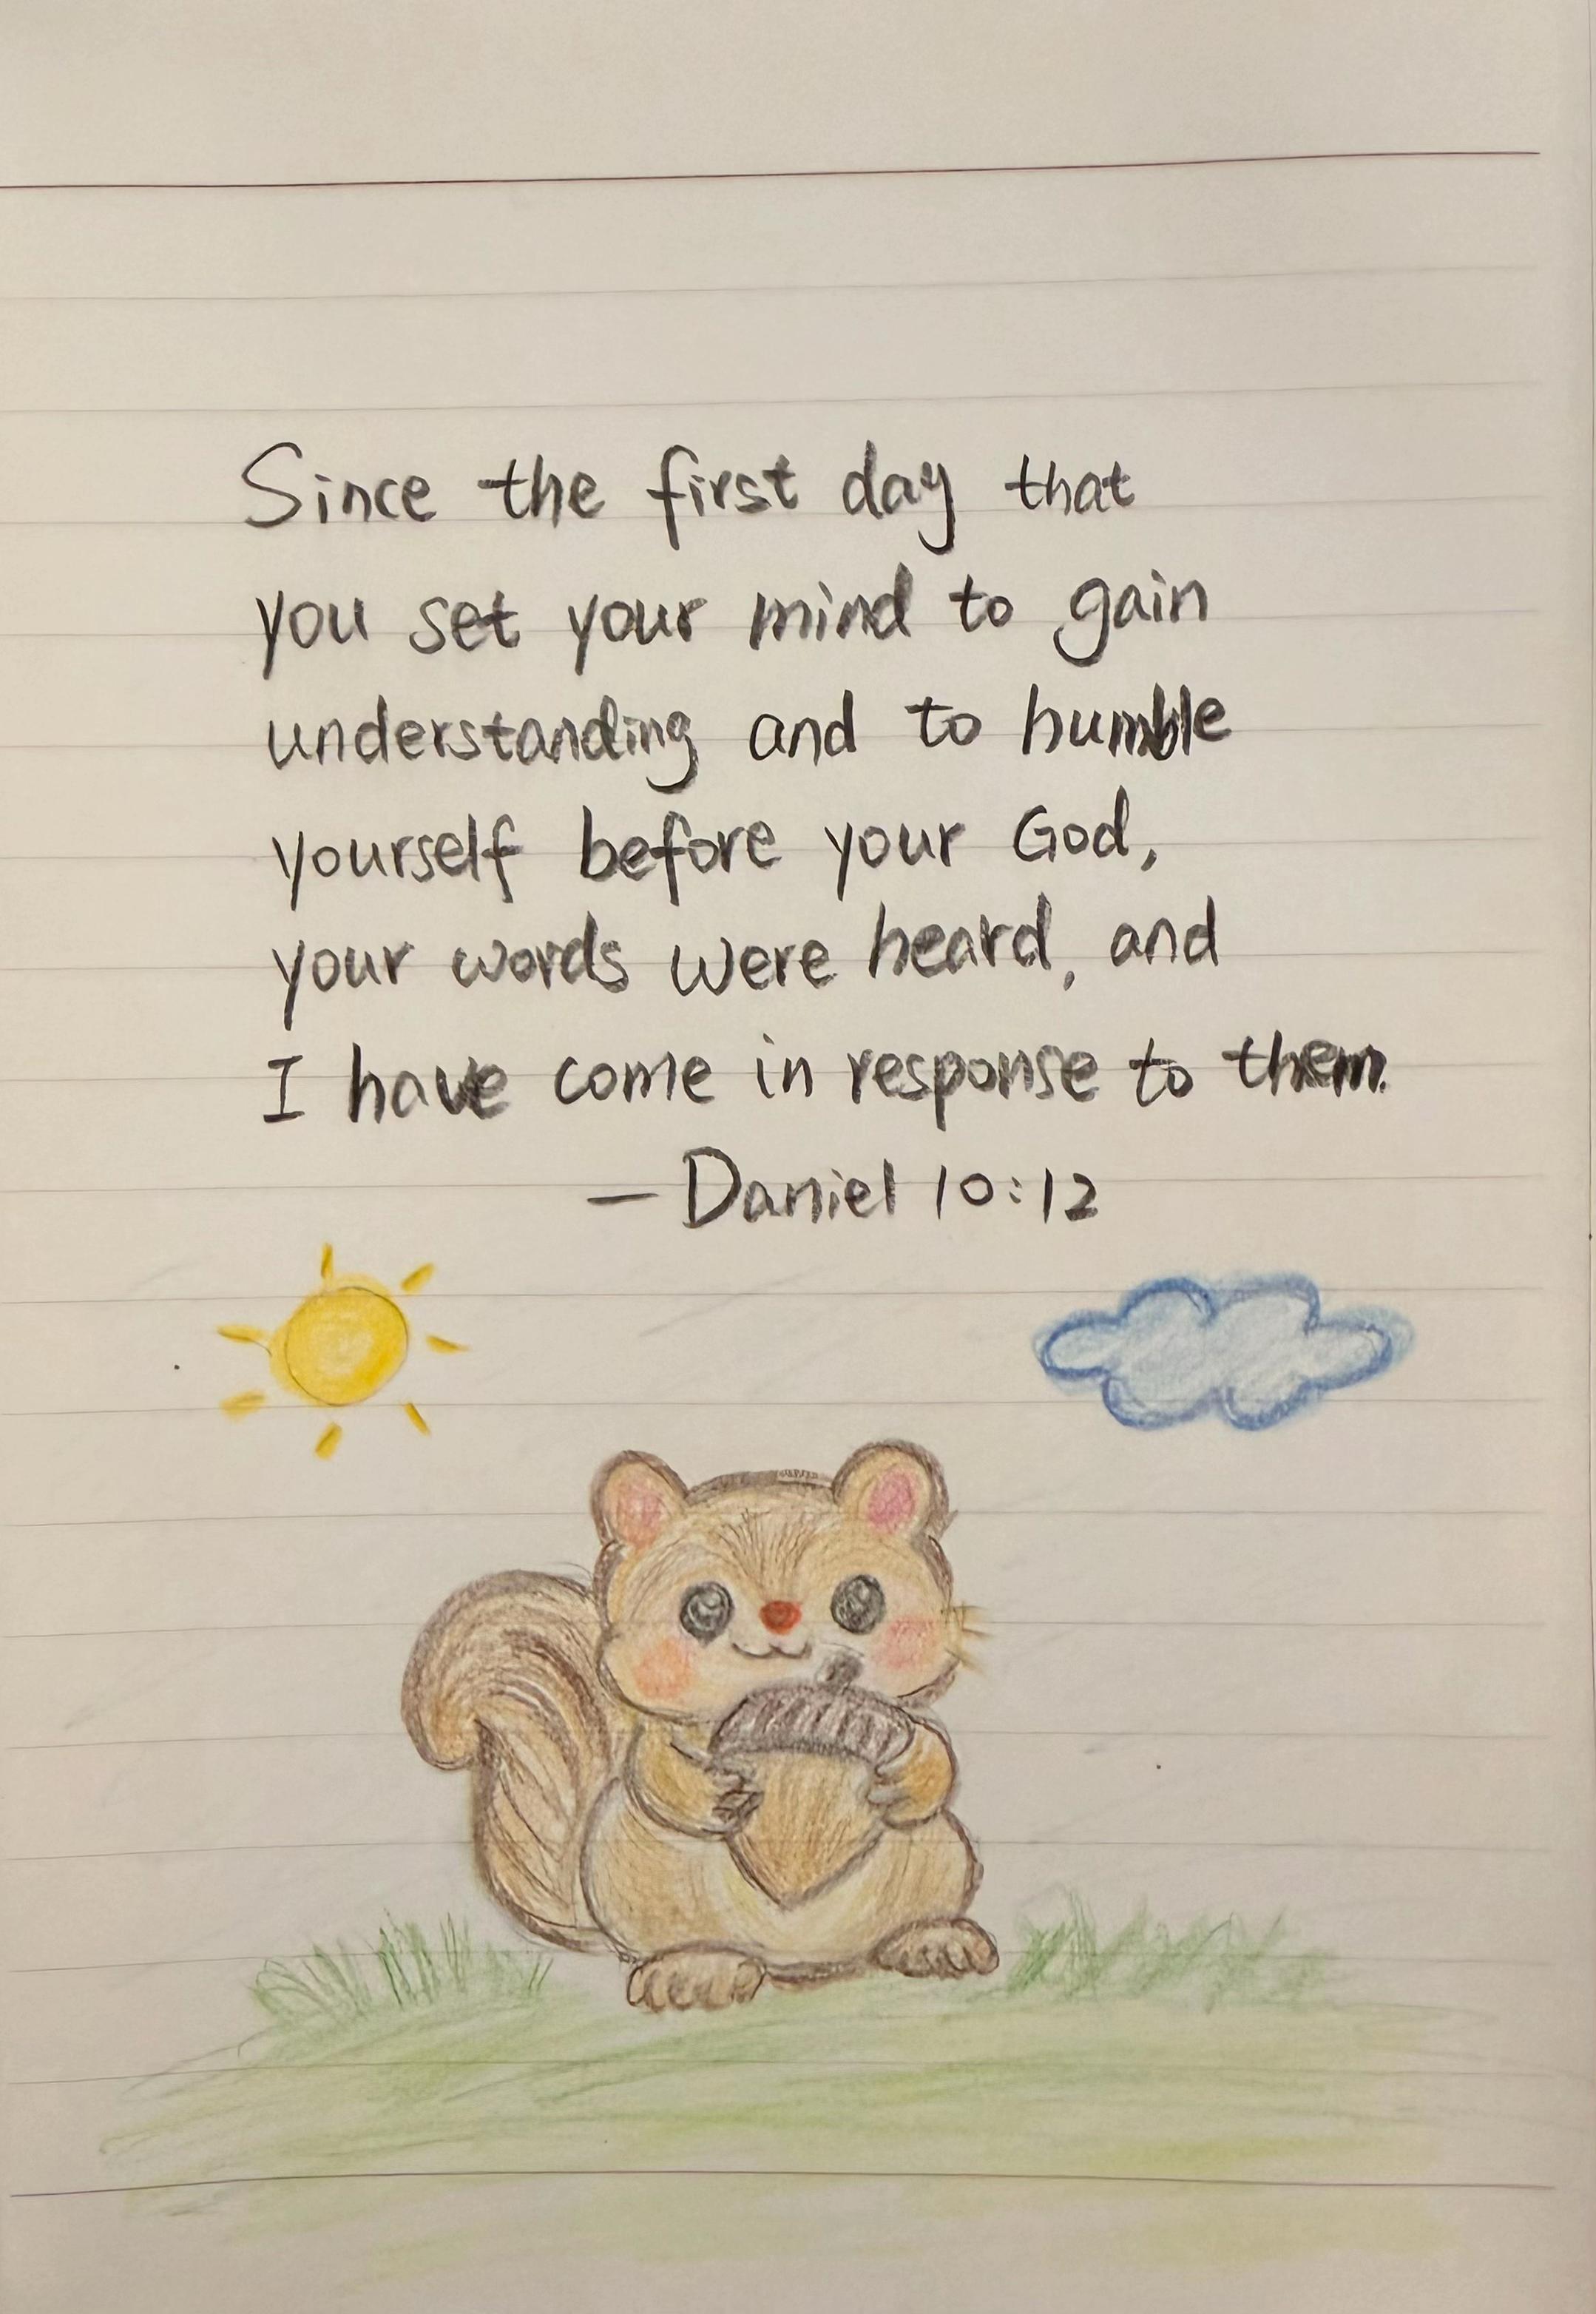 Since the first day that
you set your mind to gain
understanding and to humble
yourself before your God,
your words were heard, and
I have come in response to them.
— Daniel 10:12